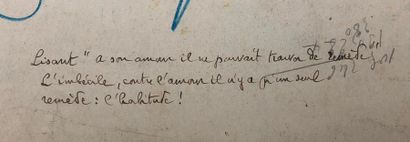 Lisant " a son amour il ne pouvait trouver de remède
L'imbécile, contre l'amour il n'y a qu'un seul
remède : l'habitude !